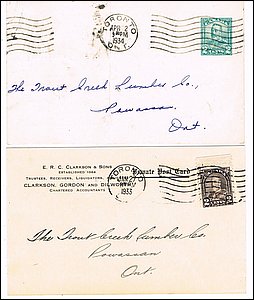 TORONTO
APR
1934
ONT.
The Trout Creek Lumber Co.,
Powassan,
Ont.
E. R. C. CLARKSON & SONS
ESTABLISHED 1864
TRUSTEES, RECEIVERS, LIQUIDATORS,
CLARKSON, GORDON AND DILWORTH
CHARTERED ACCOUNTANTS
Private Post Card
TORONTO
JAN
1933
2 2
The Trout Creek Lumber Co.
Powassan
Ont.